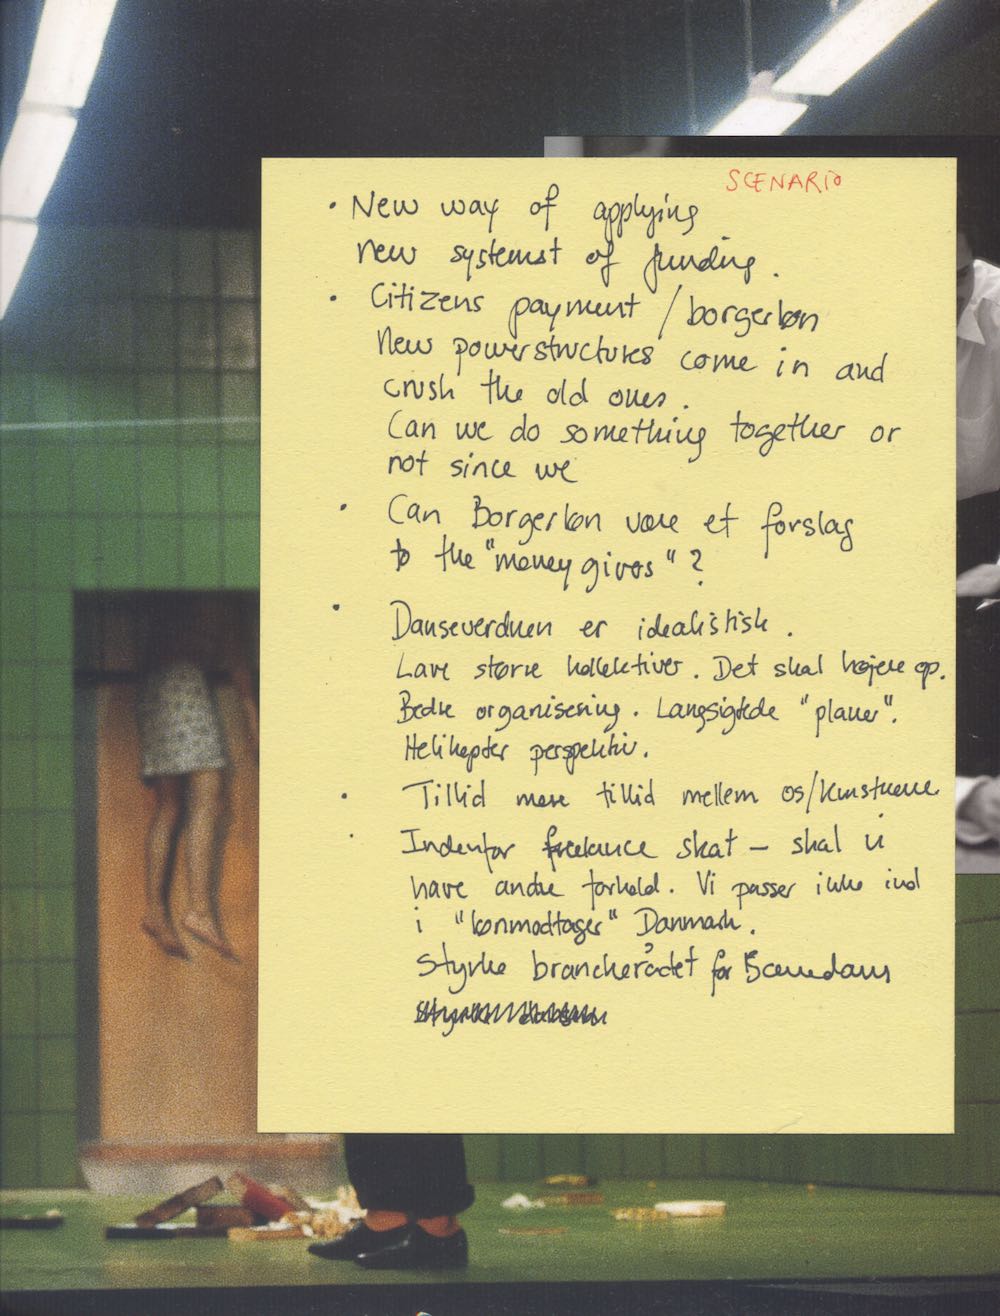 SCENARIO
• New way of applying
new systemst of funding.
• Citizens payment / borgerløn
New powerstructures come in and
crush the old ones.
Can we do something together or
not since we
• Can Borgerløn være et forslag
to the "money givers"?
• Danseverdnen er idealistisk.
Lave større kollektiver. Det skal højere op.
Bedre organisering. Langsigtede "planer".
Helikopter perspektiv.
• Tillid mere tillid mellem os/kunstnerne
• Indenfor freelance skat – skal vi
have andre forhold. Vi passer ikke ind
i "lønmodtager" Danmark.
Styrke brancherådet for Scenedans